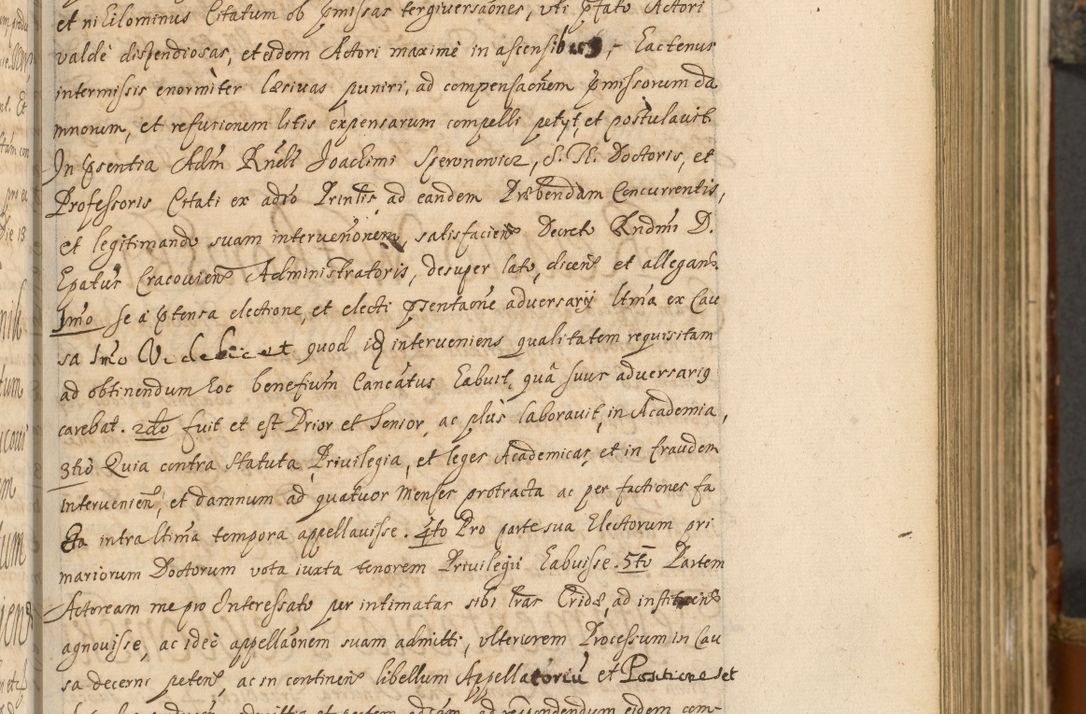 et nihilominus Citatum ob pmissas tergiversaōnes, uti pfato Actori
valdè dispendiosas, et eidem Actori maximè in ascensibus, hactenus
intermissis enormiter læsivas puniri, ad compensaōnem pmissorum da
mnorum, et refusionem litis expensarum compelli petyt, et postulavit
In psentia Adm Rndi Joachimi Speronowicz, S. Th. Doctoris, et
Professoris Citati ex adso Printis, ad eandem Præbendam Concurrentis,
et legitimando suam intervenōnem, satisfacien Decreto Rndmi D.
Epatus Cracovien Administratoris, desuper lato, dicen et allegan
1mo se à ptensa electione, et electi psentaōne adversarij Ultma ex Cau
sa 1mo Videlicet quod id interveniens qualitatem requisitam
ad obtinendum hoc beneficium Canōatus habuit, quâ suus adversarig
carebat. 2do fuit et est Prior et Senior, ac plùs laboravit, in Academia,
3tio Quia contra Statuta Privilegia, et leges Academicas, et in fraudem
Intervenien, et damnum ad quatuor Menses protracta ac per factiones fa
cta intra ltima tempora appellavisse. 4to Pro parte sua Electorum pri
mariorum Doctorum vota iuxta tenorem Privilegii habuisse. 5to Partem
Actoream me pro Interessato per intimatas sibi lras Cridæ, ad instituen
agnovisse, ac ideò appellaōnem suam admitti, ulteriorem Processum in Cau
sa decerni peten, ac in continen libellum Appellatoriū et Positiones et
admitti et partem ad respondendum eidem com-